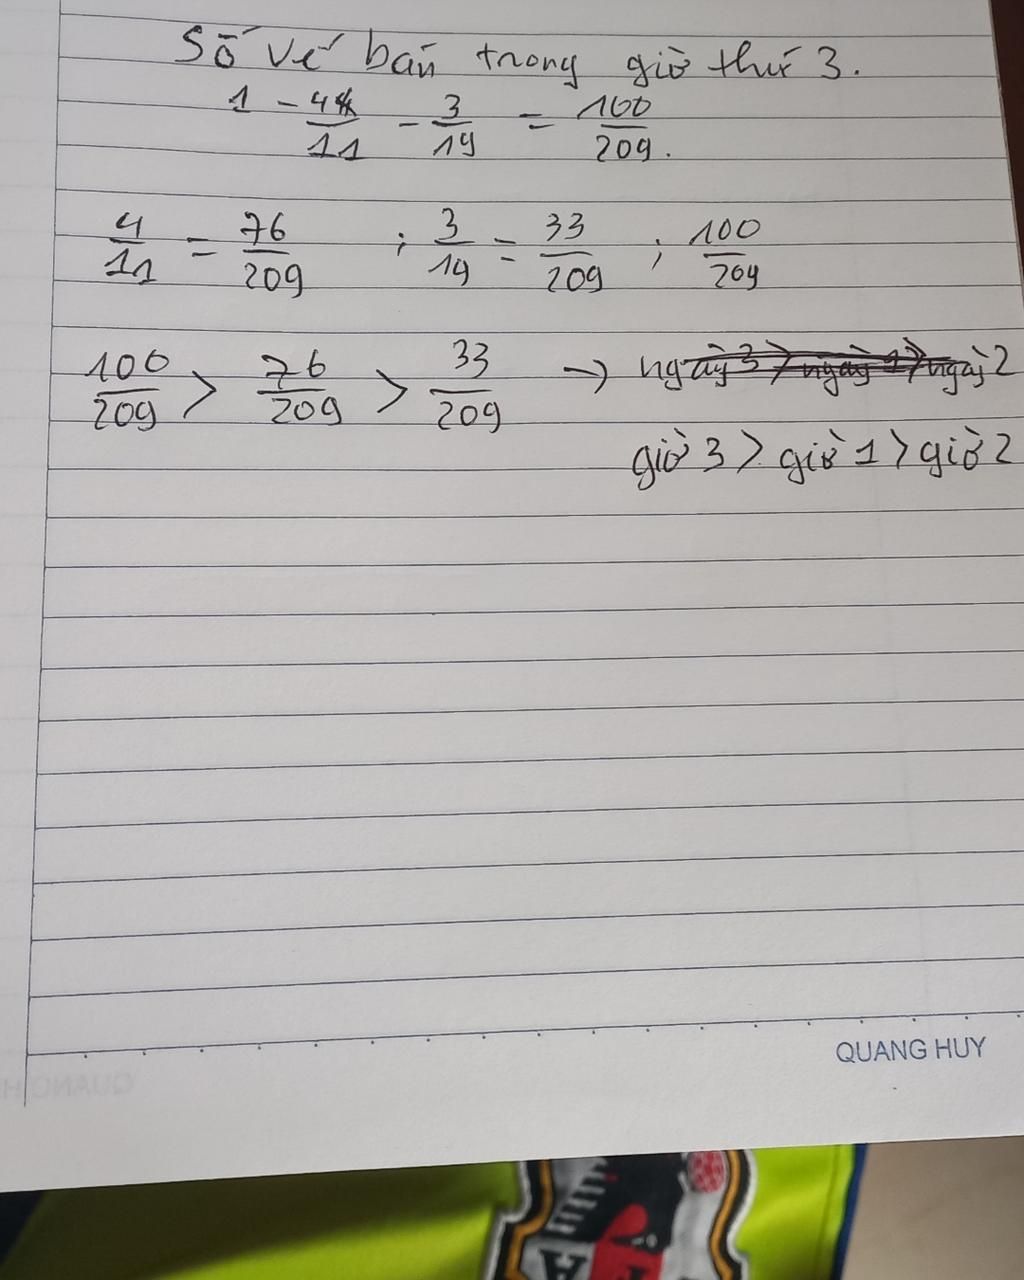 Số vé bán trong giờ thứ 3.
1 - 4/11 - 3/19 = 100/209.
4/11 = 76/209 ; 3/19 = 33/209 ; 100/209
100/209 > 76/209 > 33/209 → ngày 3 > ngày 1 > ngày 2
giờ 3 > giờ 1 > giờ 2
QUANG HUY